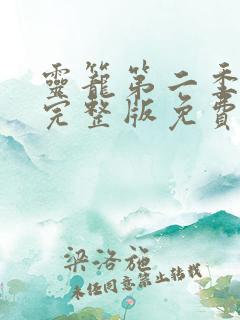 靈籠第二季
完整版免費
梁洛施
未经同意禁止转载